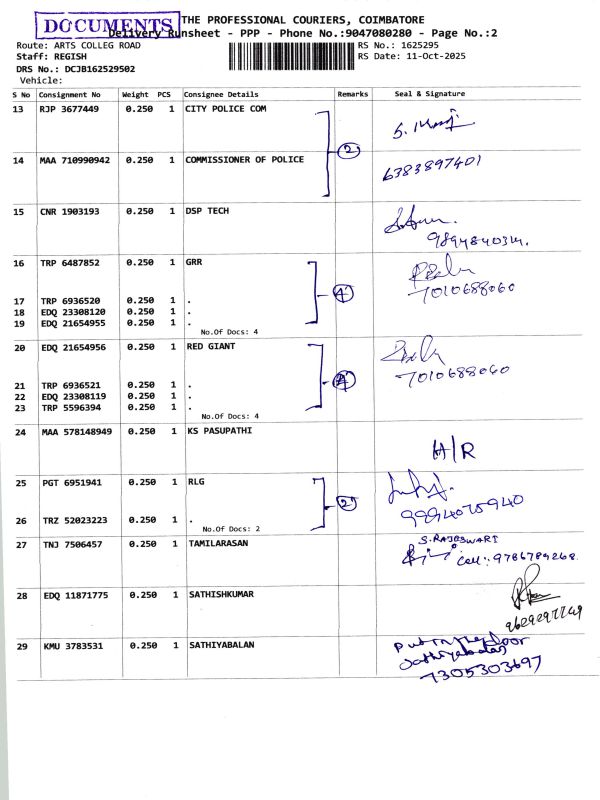 DOCUMENTS
THE PROFESSIONAL COURIERS, COIMBATORE
Delivery Runsheet - PPP - Phone No.:9047080280 - Page No.:2
Route: ARTS COLLEG ROAD
RS No.: 1625295
Staff: REGISH
RS Date: 11-Oct-2025
DRS No.: DCJB162529502
Vehicle:
S No Consignment No Weight PCS Consignee Details Remarks Seal & Signature
13 RJP 3677449 0.250 1 CITY POLICE COM
2
14 MAA 710990942 0.250 1 COMMISSIONER OF POLICE
6383897401
15 CNR 1903193 0.250 1 DSP TECH
16 TRP 6487852 0.250 1 GRR
7010688060
4
17 TRP 6936520 0.250 1 .
18 EDQ 23308120 0.250 1 .
19 EDQ 21654955 0.250 1 .
No.Of Docs: 4
20 EDQ 21654956 0.250 1 RED GIANT
7010688060
4
21 TRP 6936521 0.250 1 .
22 EDQ 23308119 0.250 1 .
23 TRP 5596394 0.250 1 .
No.Of Docs: 4
24 MAA 578148949 0.250 1 KS PASUPATHI
H/R
25 PGT 6951941 0.250 1 RLG
2
9994075940
26 TRZ 52023223 0.250 1 .
No.Of Docs: 2
27 TNJ 7506457 0.250 1 TAMILARASAN
S.RAJESWARI
Cell: 9786789268
28 EDQ 11871775 0.250 1 SATHISHKUMAR
29 KMU 3783531 0.250 1 SATHIYABALAN
Put in the door
Sathiyabalan
7305303697